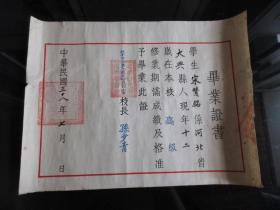 畢業證書
學生宋贊瑞係河北省
大興縣人現年十二
歲在本校高級
修業期滿成績及格准
予畢業此證
校長孫少青
中華民國三十八年七月 日